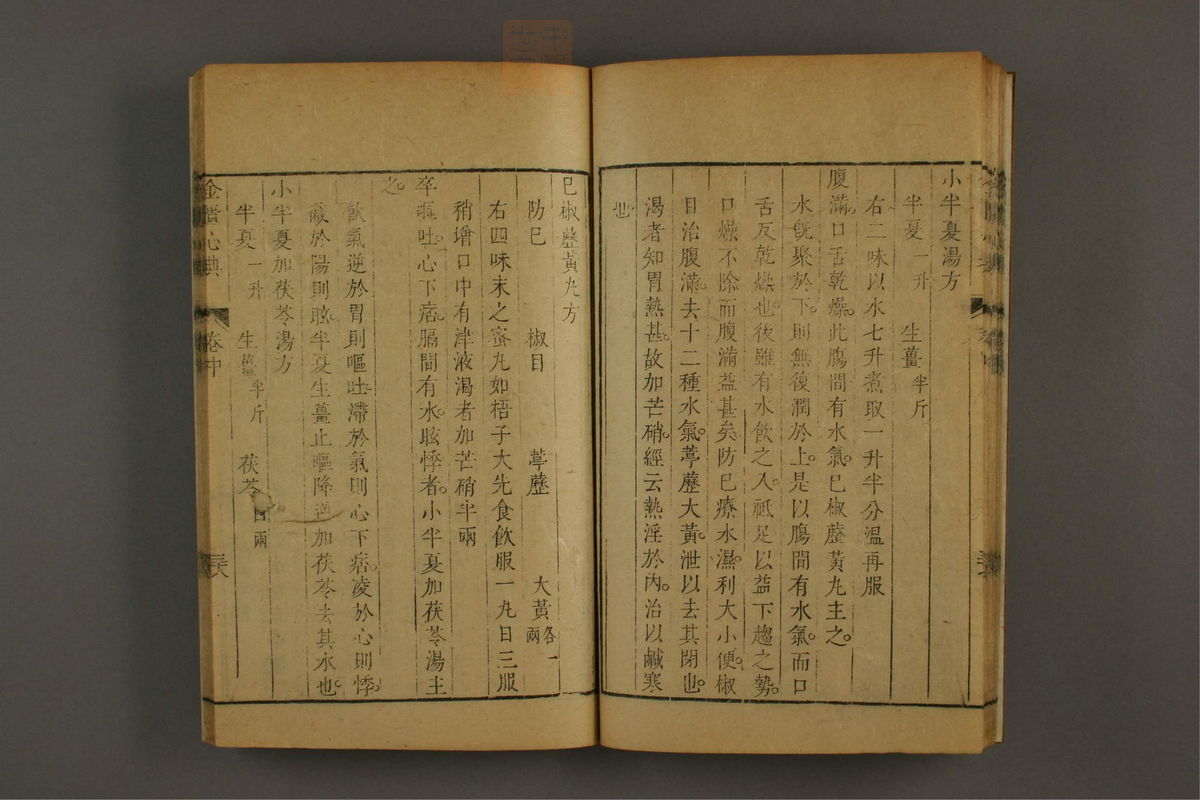 小半夏湯方
半夏一升　生薑半斤
右二味以水七升煮取一升半分溫再服
腹滿口舌乾燥此腸間有水氣巳椒藶黃丸主之
水旣聚於下則無復潤於上是以腸間有水氣而口
舌反乾燥也後雖有水飮之入祗足以益下趨之勢
口燥不除而腹滿益甚矣防巳療水濕利大小便椒
目治腹滿去十二種水氣葶藶大黃泄以去其閉也
渴者知胃熱甚故加芒硝經云熱淫於內治以鹹寒
也
巳椒藶黃丸方
防巳　椒目　葶藶　大黃各一兩
右四味末之蜜丸如梧子大先食飮服一丸日三服
稍增口中有津液渴者加芒硝半兩
卒嘔吐心下痞膈間有水眩悸者小半夏加茯苓湯主
之
飮氣逆於胃則嘔吐滯於氣則心下痞凌於心則悸
蔽於陽則眩半夏生薑止嘔降逆加茯苓去其水也
小半夏加茯苓湯方
半夏一升　生薑半斤　茯苓四兩
金匱心典　卷中　三十八